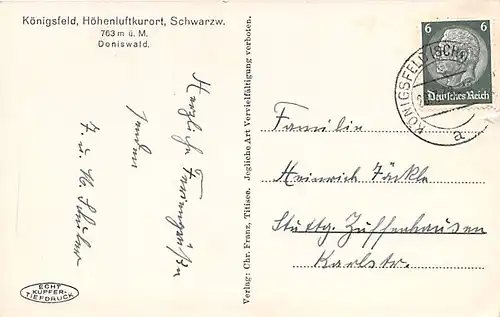 Königsfeld, Höhenluftkurort, Schwarzw.
763 m ü. M.
Doniswald.
Herzliche Feriengrüße
senden
F. u. W. Schüler
ECHT
KUPFER-
TIEFDRUCK
Verlag: Chr. Franz, Titisee. Jegliche Art Vervielfältigung verboten.
6 6
Deutsches Reich
KÖNIGSFELD (SCHW
a
Familie
Heinrich Jäckle
Stuttg. Zuffenhausen
Karlstr.